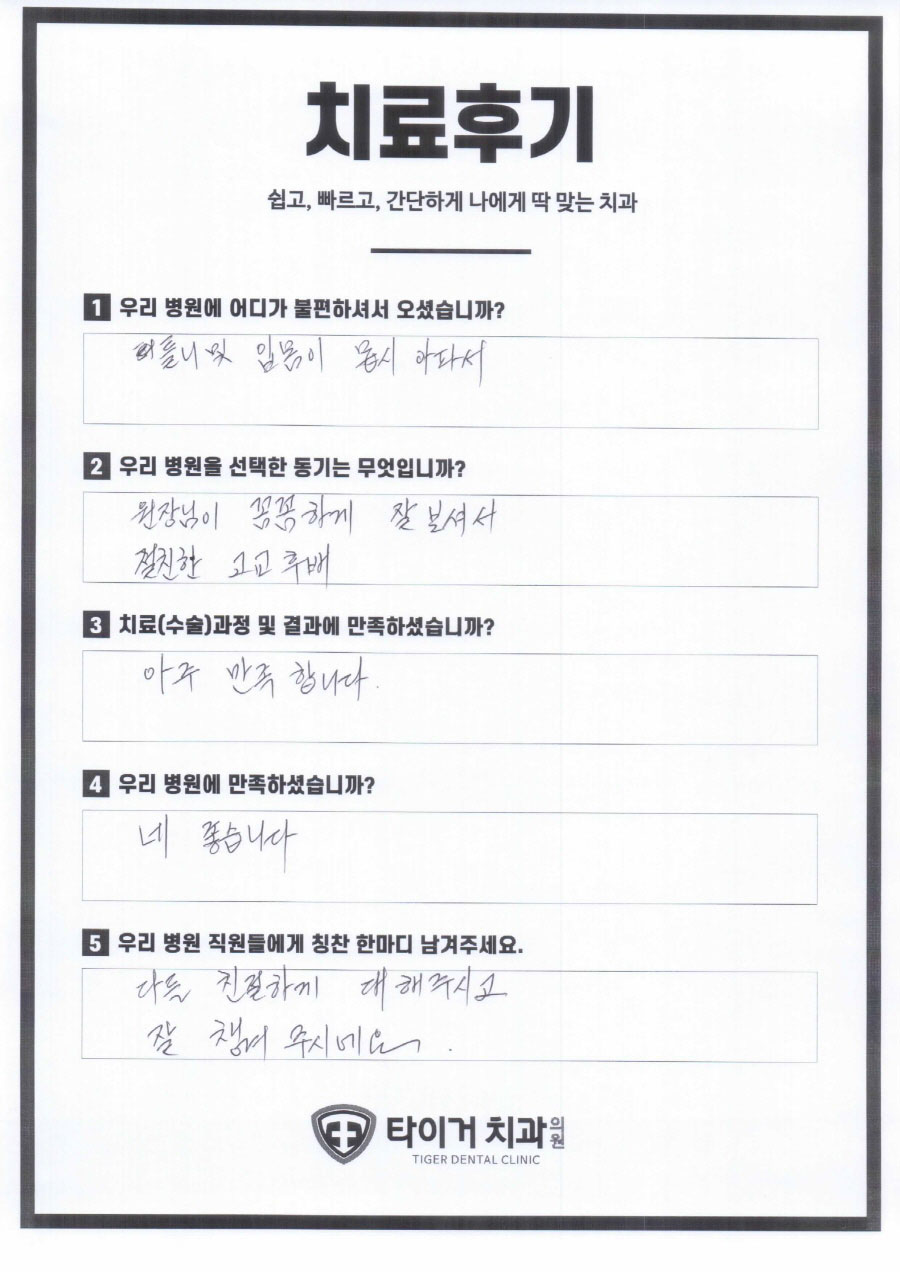 치료후기
쉽고, 빠르고, 간단하게 나에게 딱 맞는 치과
1 우리 병원에 어디가 불편하셔서 오셨습니까?
뻐틀니 및 잇몸이 몹시 아파서
2 우리 병원을 선택한 동기는 무엇입니까?
원장님이 꼼꼼하게 잘 보셔서
절친한 고교 후배
3 치료(수술)과정 및 결과에 만족하셨습니까?
아주 만족 합니다.
4 우리 병원에 만족하셨습니까?
네 좋습니다
5 우리 병원 직원들에게 칭찬 한마디 남겨주세요.
다들 친절하게 대해주시고
잘 챙겨 주시네요.
타이거 치과의원
TIGER DENTAL CLINIC